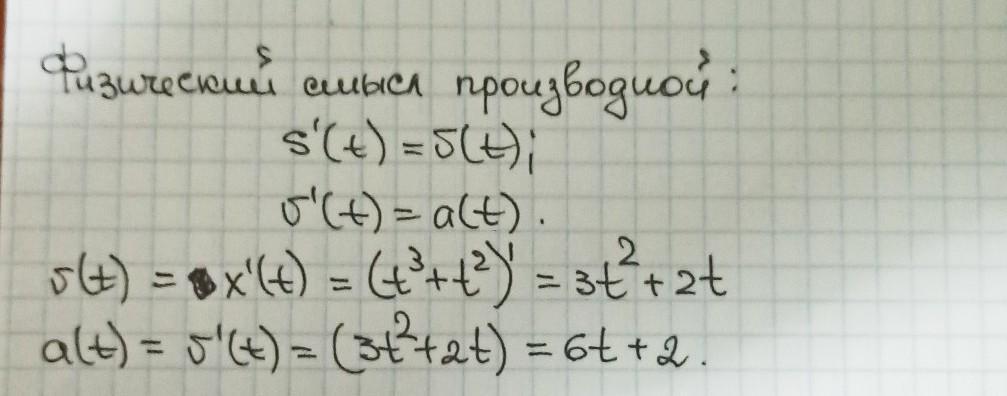 Физический смысл производной:
s'(t) = υ(t);
υ'(t) = a(t).
υ(t) = x'(t) = (t³+t²)' = 3t² + 2t
a(t) = υ'(t) = (3t²+2t) = 6t + 2.